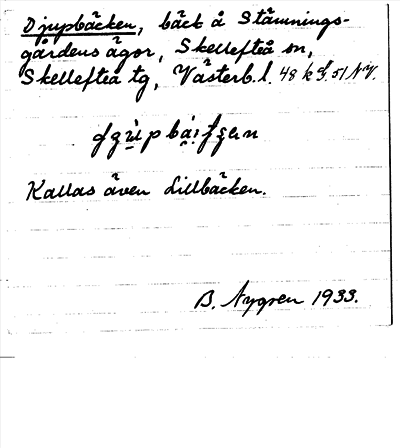 Djupbäcken, bäck å Stämnings-
gårdens ägor, Skellefteå sn,
Skellefteå tg, Västerb. l. 48 k
Kallas även Lillbäcken.
B. Nygren 1933.